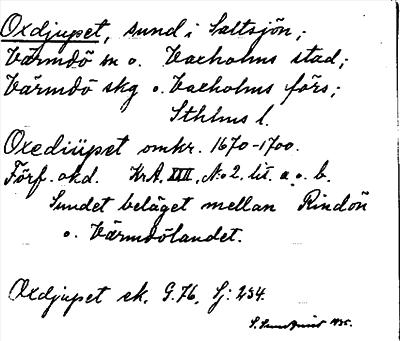 Oxdjupet, sund i Saltsjön;
Värmdö sn o. Vaxholms stad;
Värmdö skg o. Vaxholms förs;
Sthlms l.
Oxediüpet omkr. 1670-1700.
Förf. okd. KrA. XIII, No 2, lit. a. o. b.
Sundet beläget mellan Rindön
o. Värmdölandet.
Oxdjupet ek. G. 76, Sj: 234.
S. Sundquist 1935.